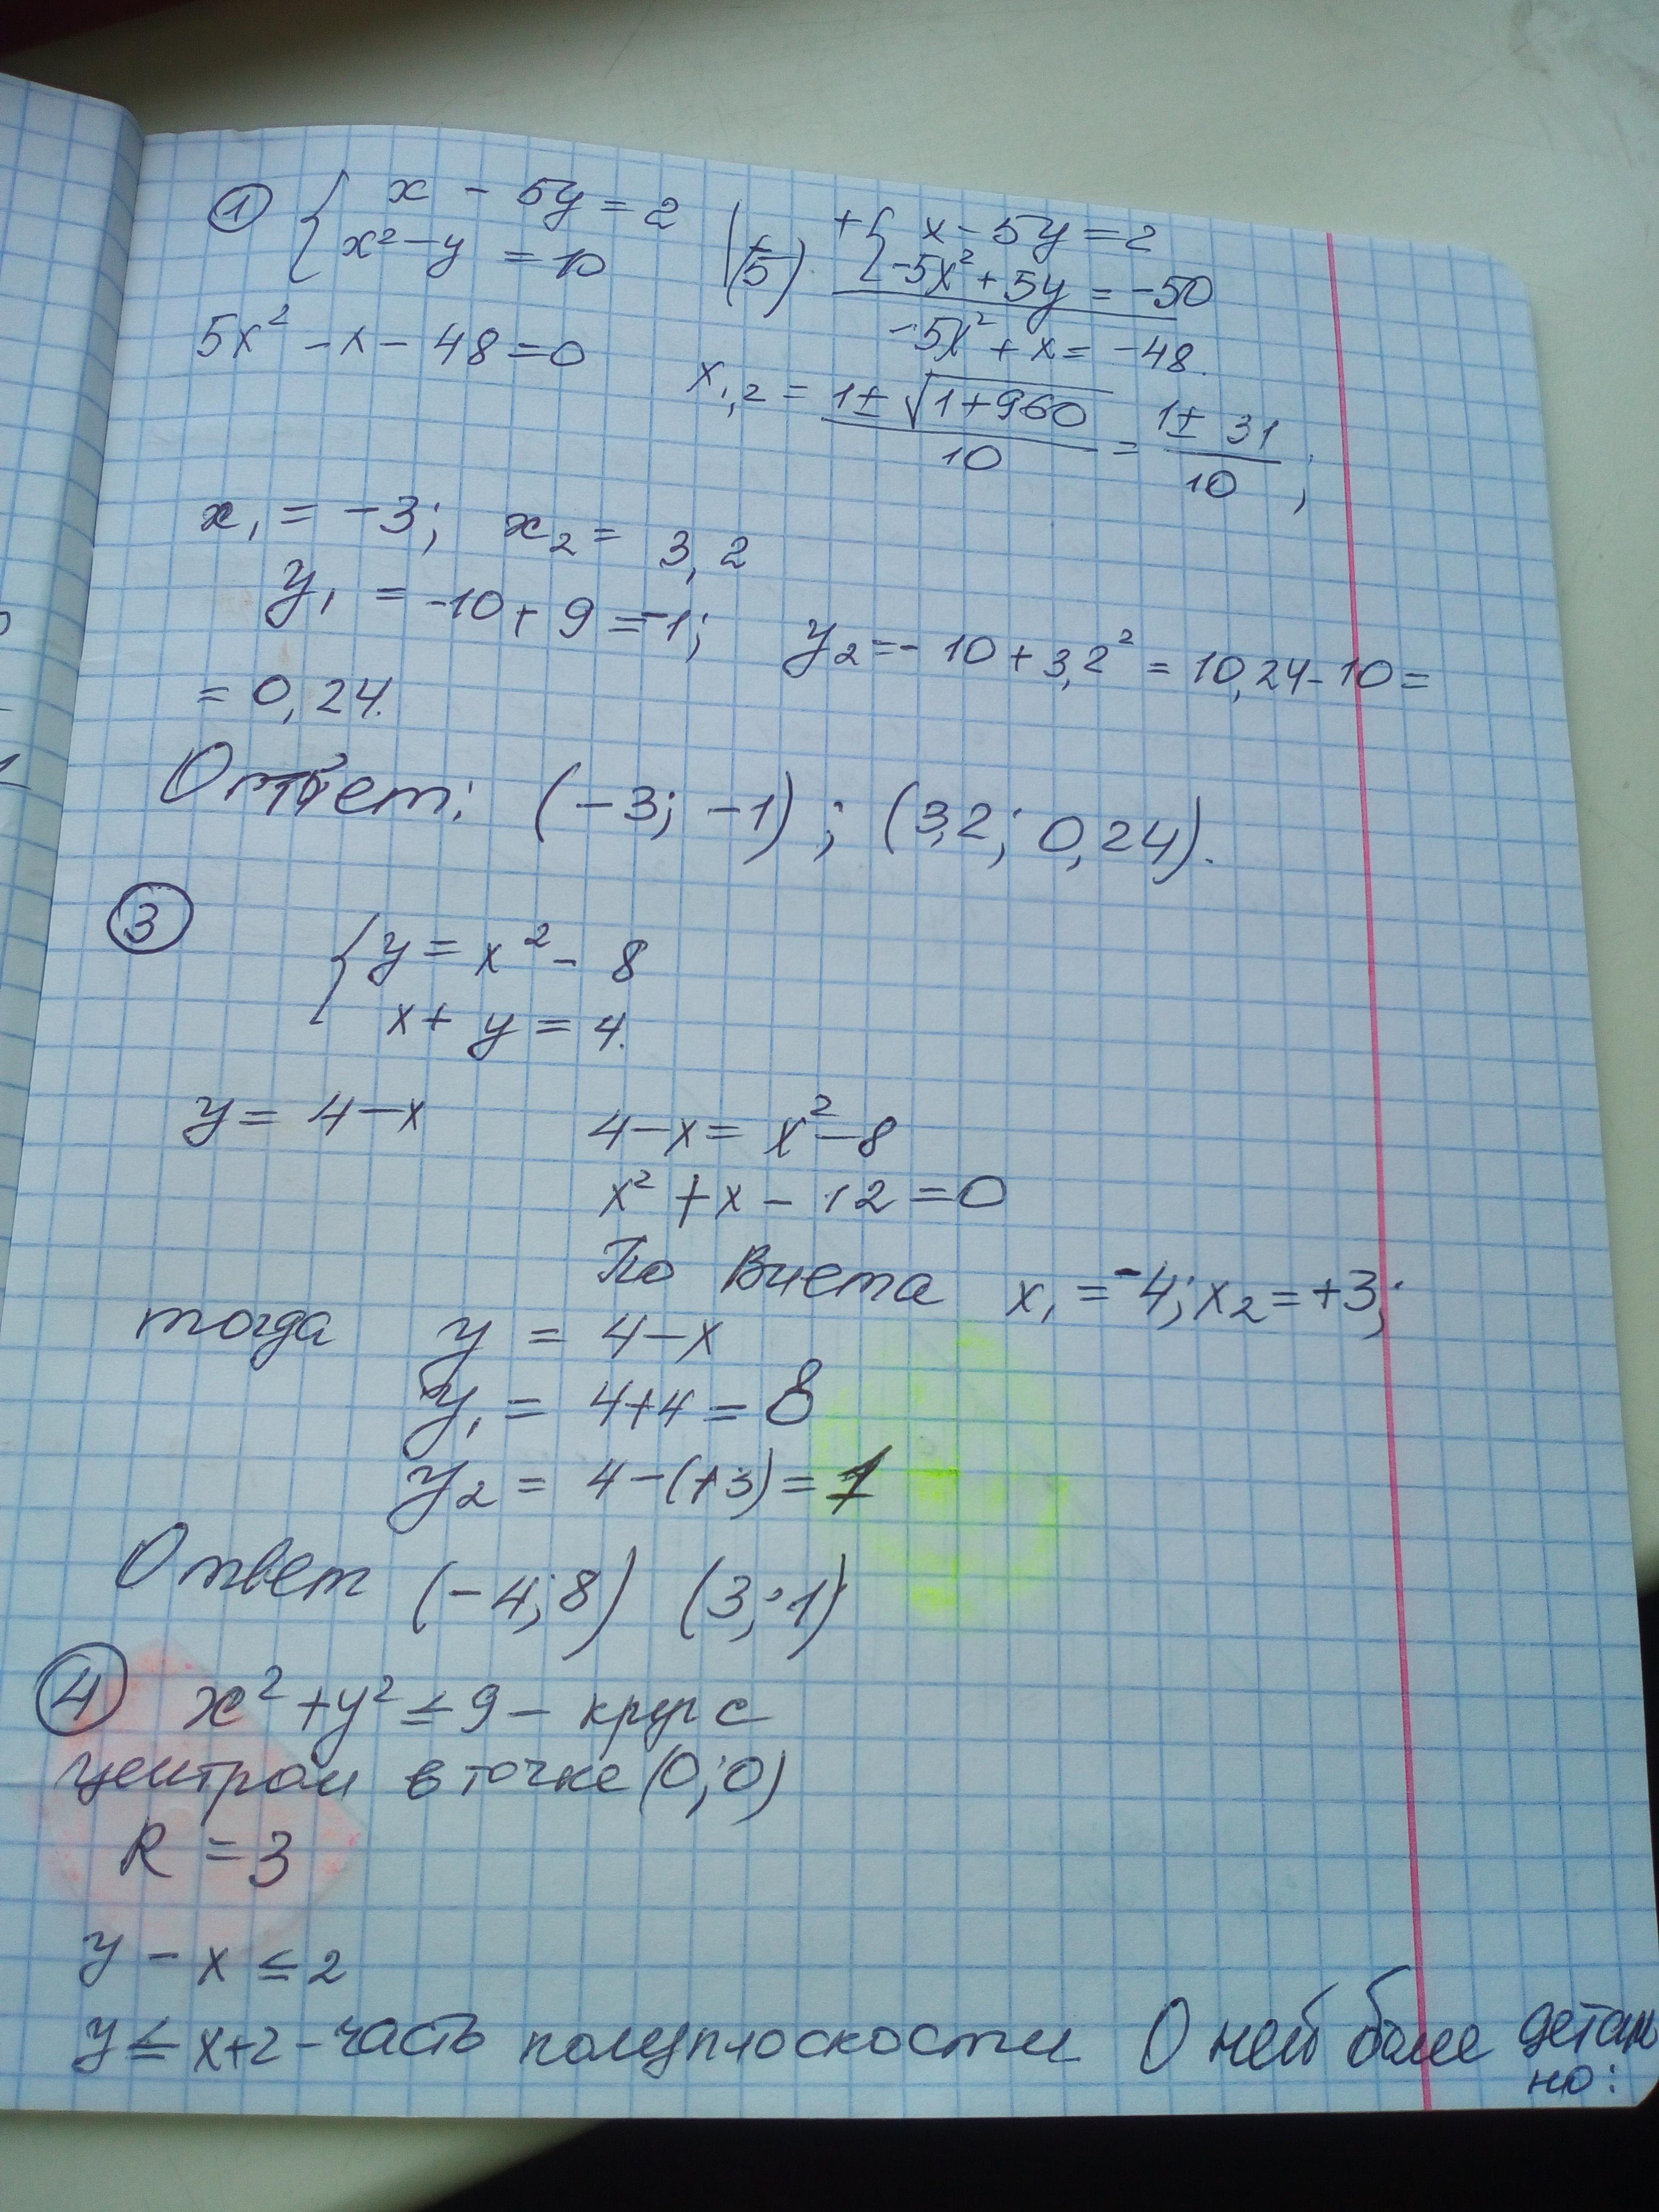 ① { x - 5y = 2 | (-5) + { x - 5y = 2
x² - y = 10 -5x² + 5y = -50
5x² - x - 48 = 0 -5x² + x = -48.
x₁,₂ = (1 ± √(1+960))/10 = (1 ± 31)/10 ;
x₁ = -3; x₂ = 3,2
y₁ = -10 + 9 = -1; y₂ = -10 + 3,2² = 10,24 - 10 =
= 0,24.
Ответ: (-3; -1) ; (3,2; 0,24).
③
{ y = x² - 8
x + y = 4.
y = 4 - x 4 - x = x² - 8
x² + x - 12 = 0
По Виета x₁ = -4; x₂ = +3;
тогда y = 4 - x
y₁ = 4+4 = 8
y₂ = 4 - (+3) = 1
Ответ (-4; 8) (3; 1)
④ x² + y² ≤ 9 - круг с
центром в точке (0; 0)
R = 3
y - x ≤ 2
y ≤ x+2 - часть полуплоскости О ней более деталь
но: